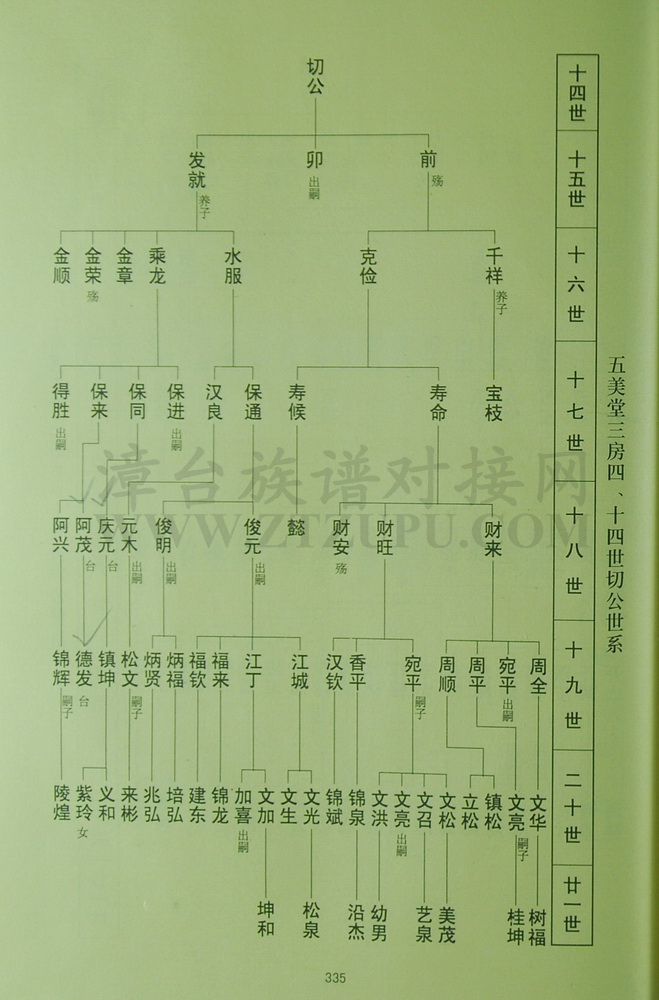 五美堂三房四、十四世切公世系
十四世
切公
十五世
前 殇
卯 出嗣
发就 养子
十六世
千祥 养子
克俭
水服
乘龙
金章
金荣 殇
金顺
十七世
宝枝
寿命
寿候
保通
汉良
保进 出嗣
保同
保来
得胜 出嗣
十八世
财来
财旺
财安 殇
懿
俊元 出嗣
俊明 出嗣
元木 出嗣
庆元 台
阿茂 台
阿兴
十九世
周全
宛平 出嗣
周平
周顺
宛平 嗣子
香平
汉钦
江城
江丁
福来
福钦
炳福
炳贤
松文 嗣子
镇坤
德发 台
锦辉 嗣子
二十世
文华
文亮 嗣子
镇松
立松
文松
文召
文亮 出嗣
文洪
锦泉
锦斌
文光
文生
文加
加喜 出嗣
锦龙
建东
培弘
兆弘
来彬
义和
紫玲 女
陵煌
廿一世
树福
桂坤
美茂
艺泉
幼男
沿杰
松泉
坤和
漳台族谱对接网
WWW.ZTZUPU.COM
335